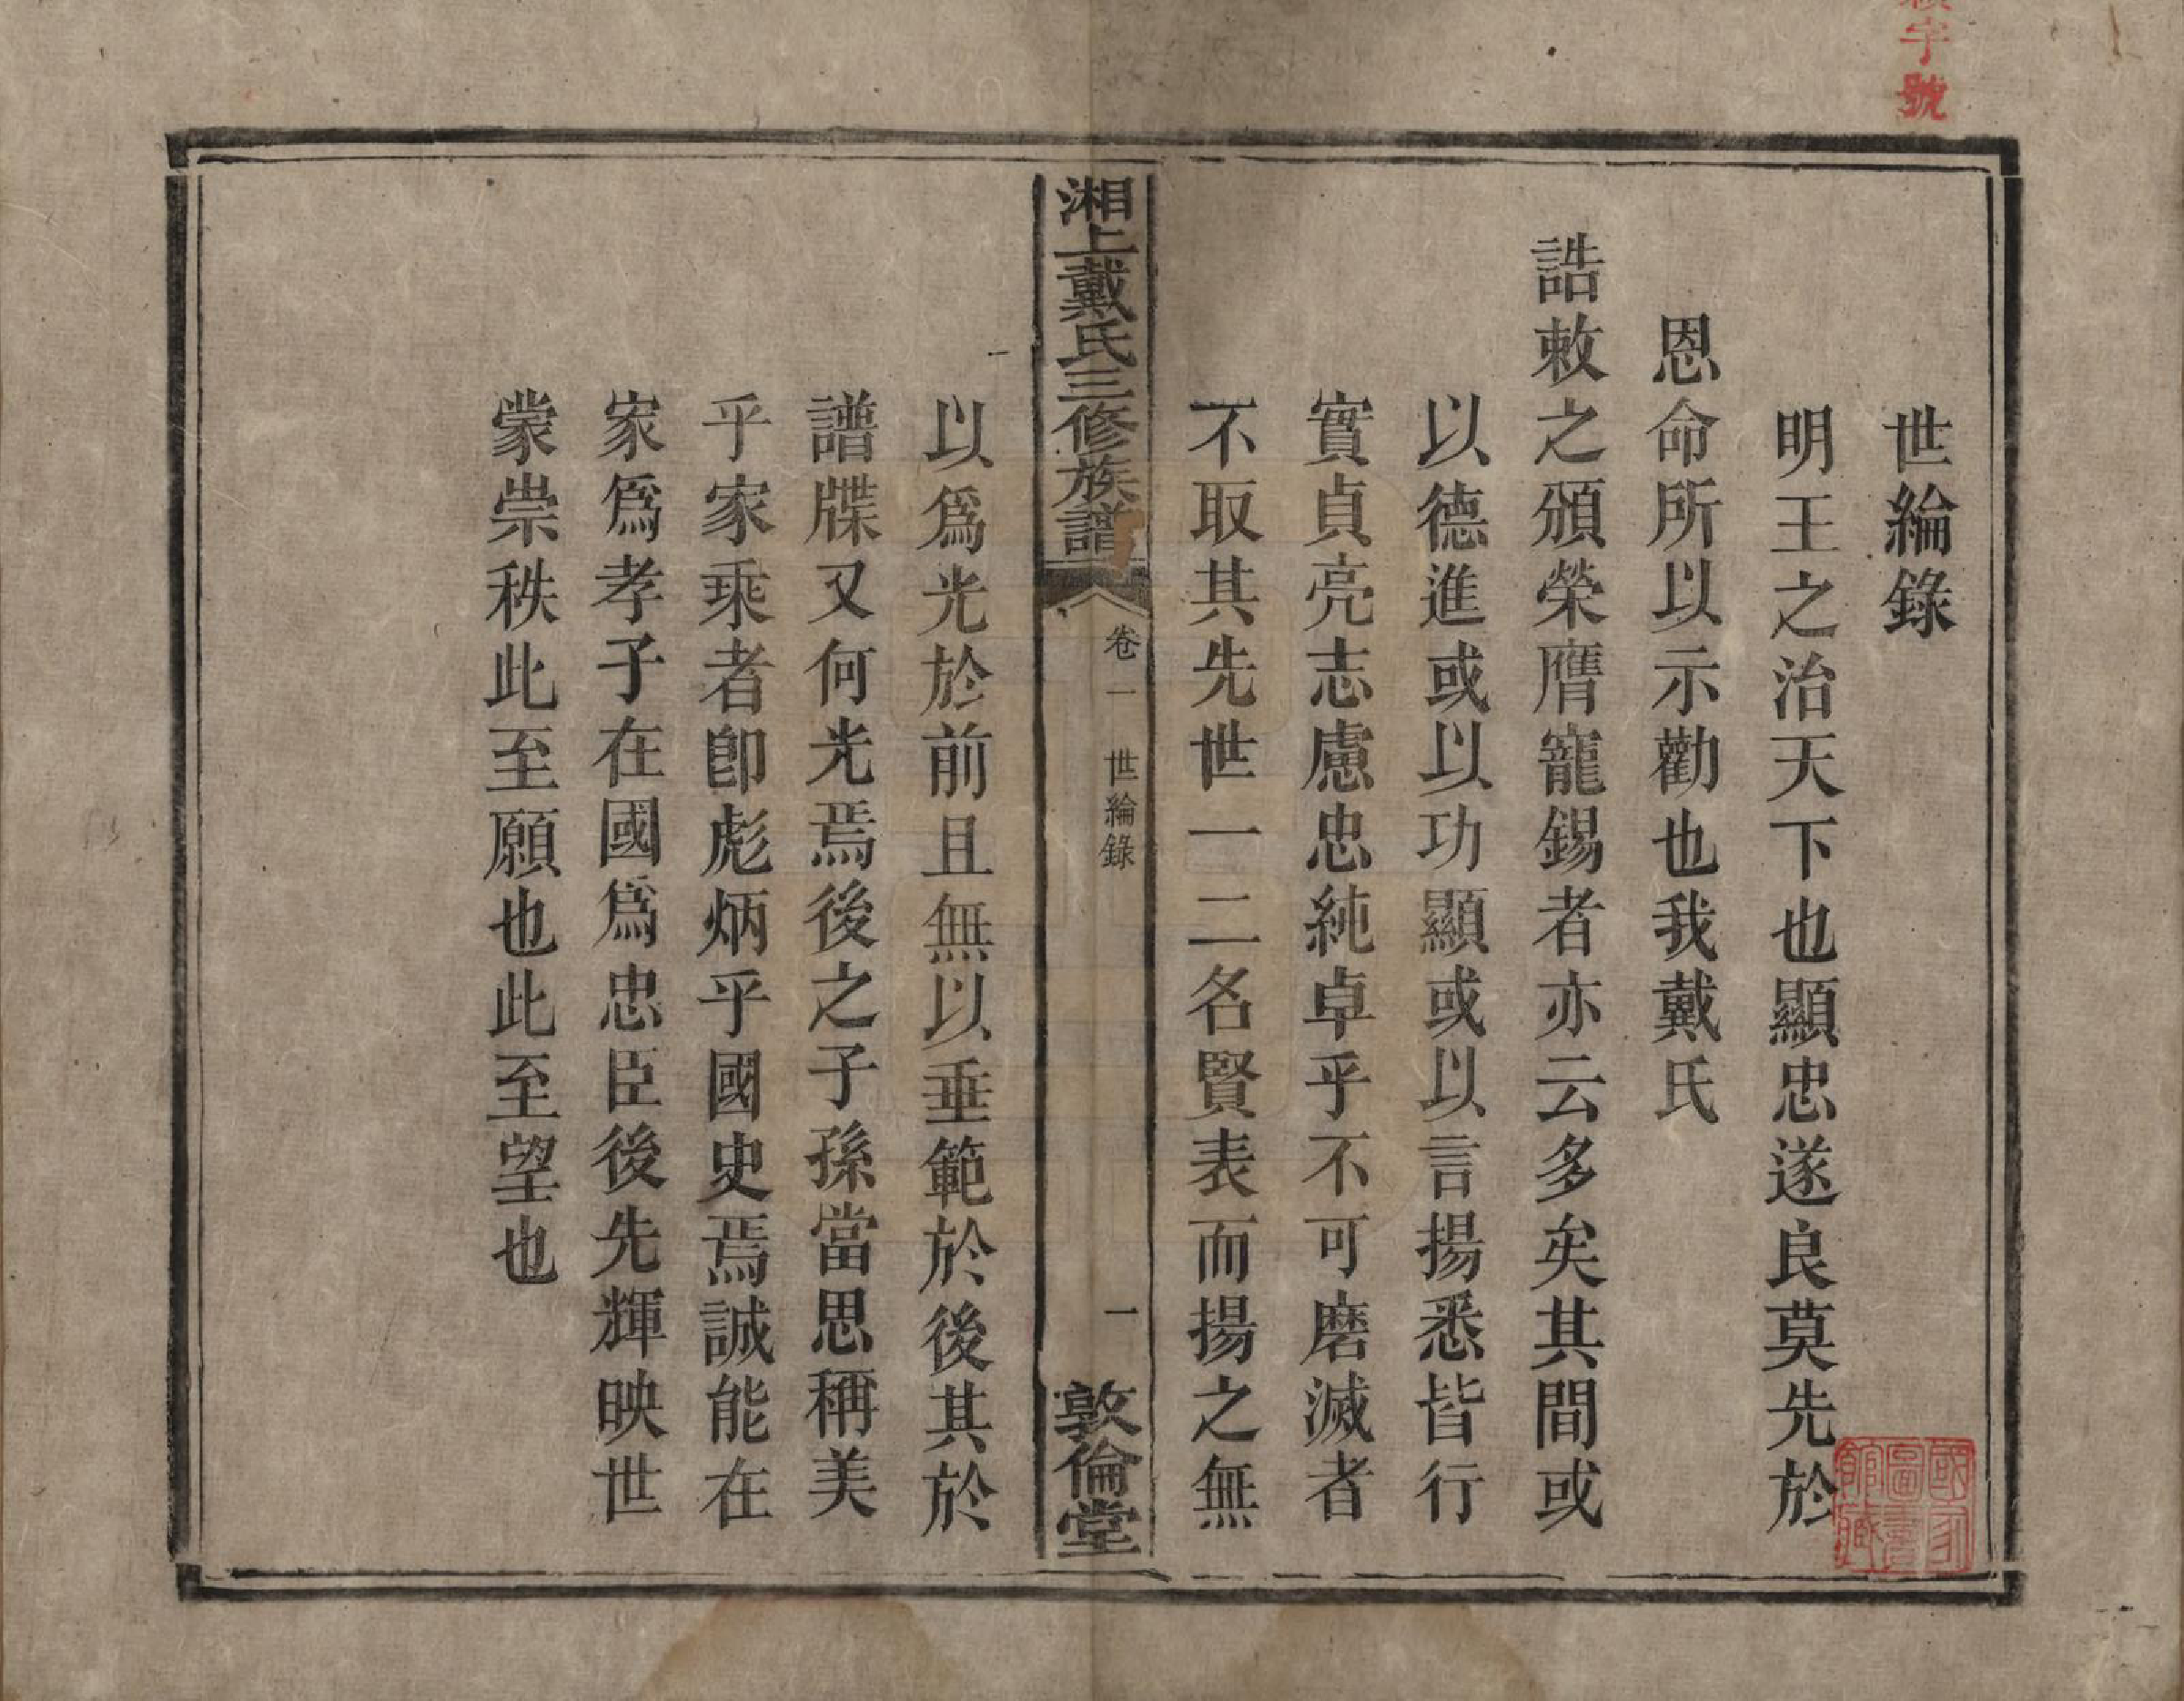 世綸錄
明王之治天下也顯忠遂良莫先於
恩命所以示勸也我戴氏
誥敕之頒榮膺寵錫者亦云多矣其間或
以德進或以功顯或以言揚悉皆行
實貞亮志慮忠純卓乎不可磨滅者
不取其先世一二名賢表而揚之無
湘上戴氏三修族譜
卷一 世綸錄
一
敦倫堂
以爲光於前且無以垂範於後其於
譜牒又何光焉後之子孫當思稱美
乎家乘者卽彪炳乎國史焉誠能在
家爲孝子在國爲忠臣後先輝映世
蒙崇秩此至願也此至望也
字號
國家
圖書
館藏